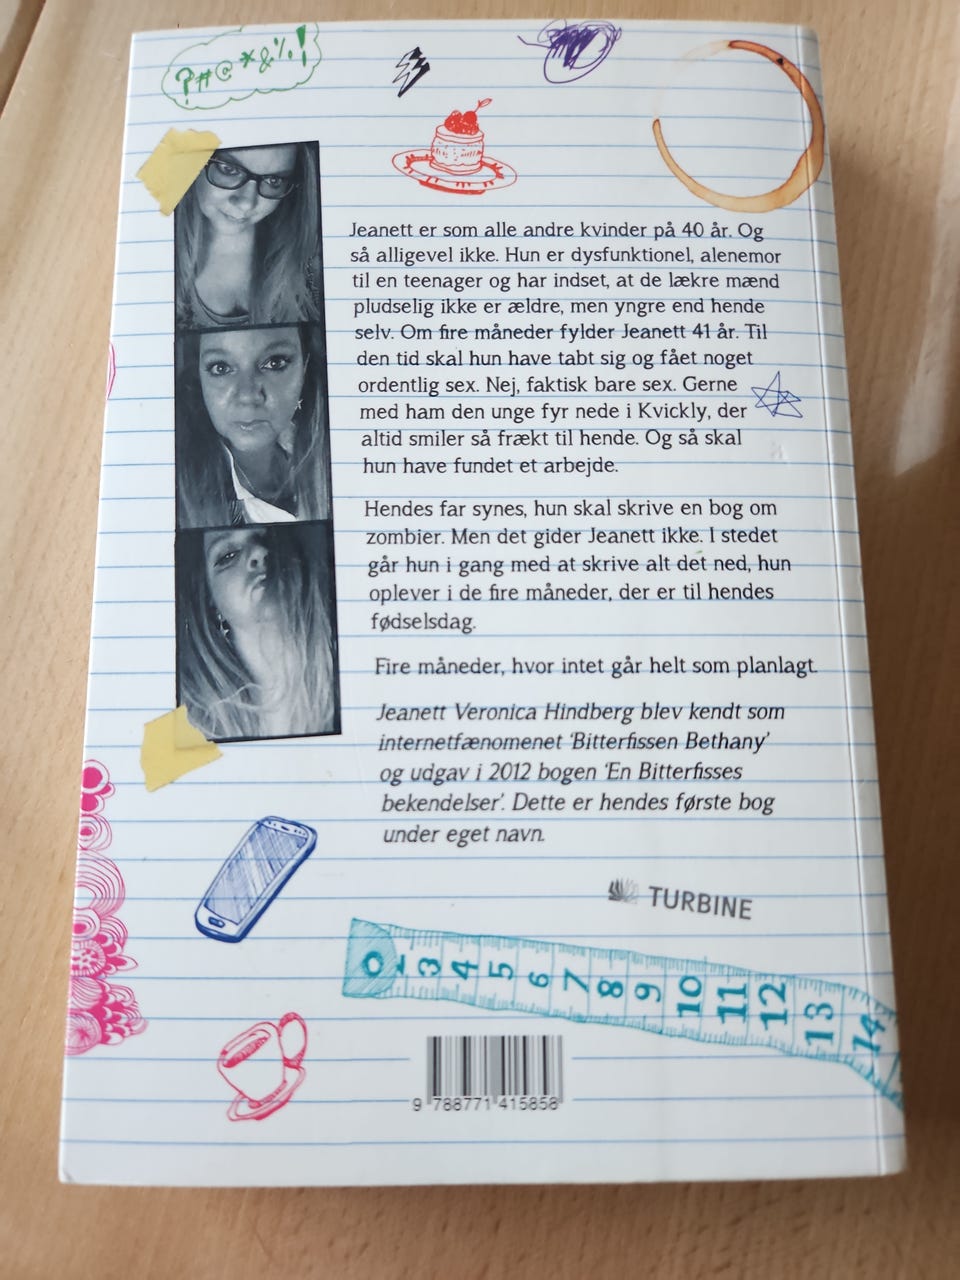 ?#@*&%!
Jeanett er som alle andre kvinder på 40 år. Og
så alligevel ikke. Hun er dysfunktionel, alenemor
til en teenager og har indset, at de lækre mænd
pludselig ikke er ældre, men yngre end hende
selv. Om fire måneder fylder Jeanett 41 år. Til
den tid skal hun have tabt sig og fået noget
ordentlig sex. Nej, faktisk bare sex. Gerne
med ham den unge fyr nede i Kvickly, der
altid smiler så frækt til hende. Og så skal
hun have fundet et arbejde.
Hendes far synes, hun skal skrive en bog om
zombier. Men det gider Jeanett ikke. I stedet
går hun i gang med at skrive alt det ned, hun
oplever i de fire måneder, der er til hendes
fødselsdag.
Fire måneder, hvor intet går helt som planlagt.
Jeanett Veronica Hindberg blev kendt som
internetfænomenet 'Bitterfissen Bethany'
og udgav i 2012 bogen 'En Bitterfisses
bekendelser'. Dette er hendes første bog
under eget navn.
TURBINE
0 2 3 4 5 6 7 8 9 10 11 12 13 14
9 788771 415858